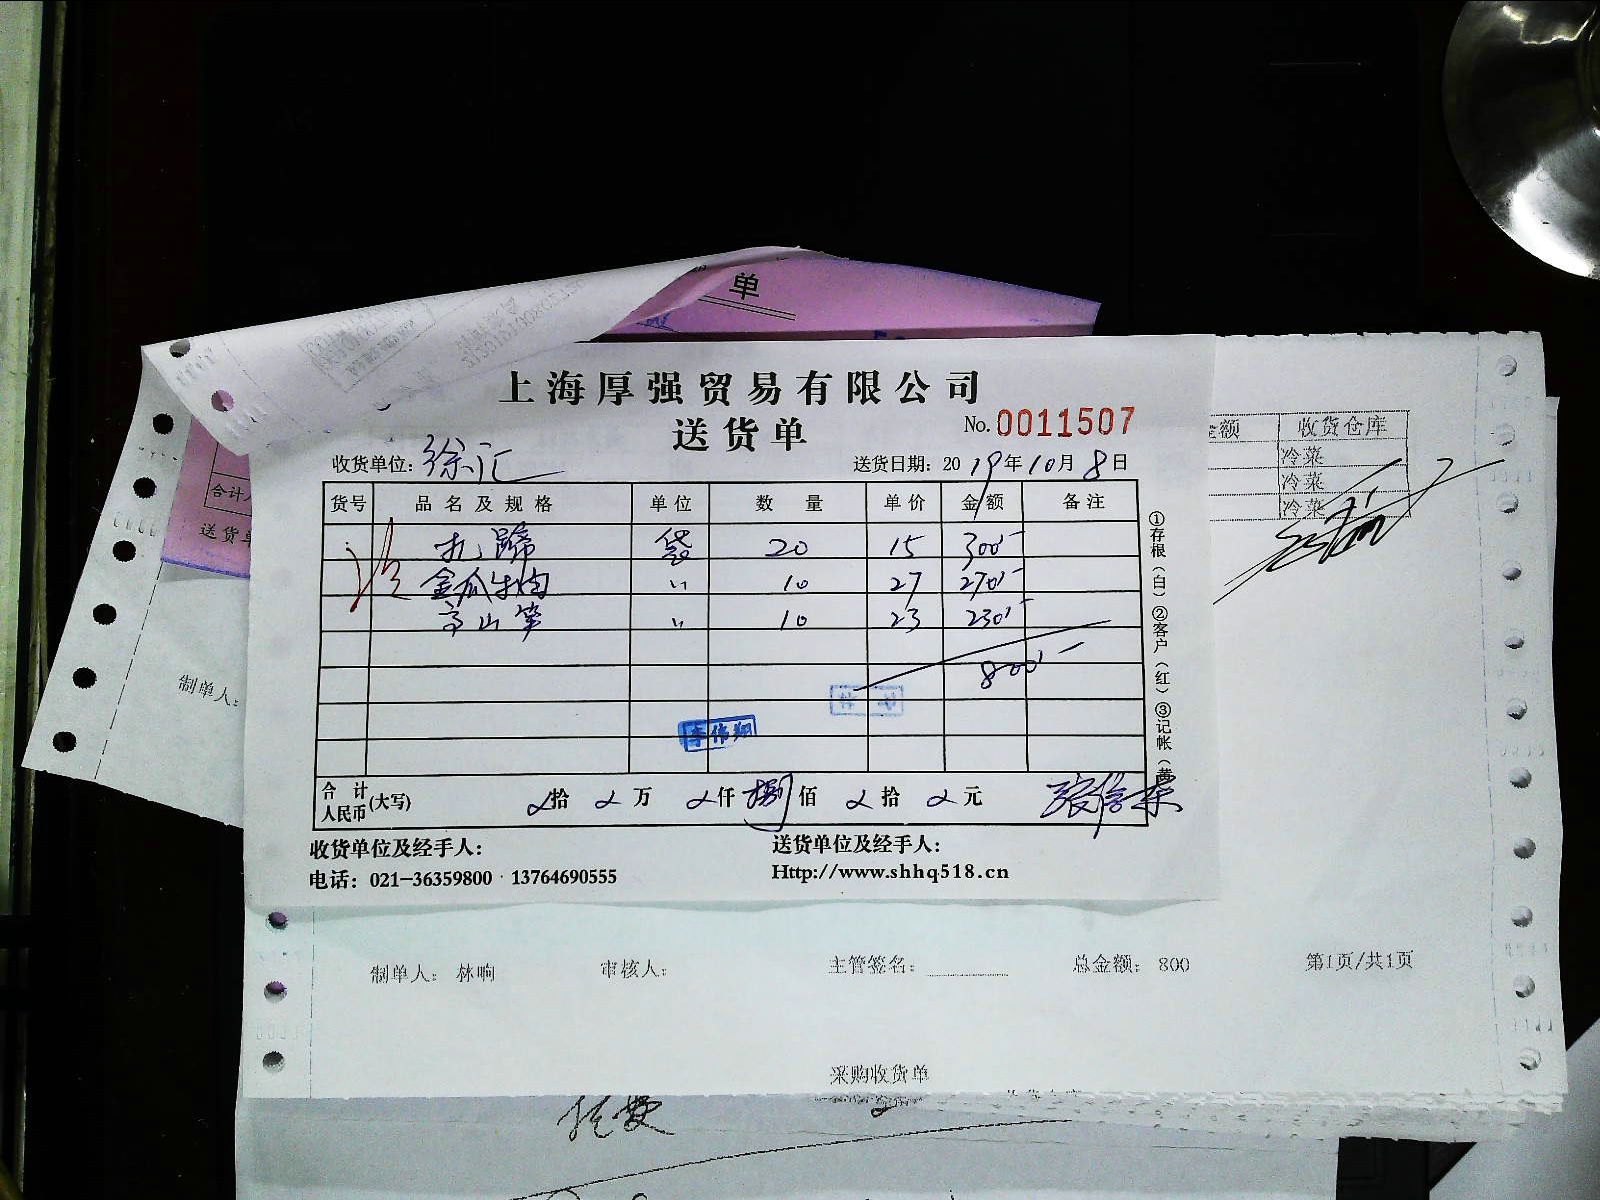 单
上海厚强贸易有限公司
送货单
No. 0011507
收货单位: 徐汇
送货日期: 2019年10月8日
货号 品名及规格 单位 数量 单价 金额 备注
扎蹄 袋 20 15 300-
金瓜牛肉 〃 10 27 270-
高山笋 〃 10 23 230-
800-
李伟翔
合计人民币(大写) 拾 万 仟 捌佰 拾 元
收货单位及经手人:
送货单位及经手人:
电话: 021-36359800 13764690555
Http://www.shhq518.cn
①存根(白)②客户(红)③记帐(黄
金额 收货仓库
冷菜
冷菜
冷菜
合计
送货单
制单人:
制单人: 林响 审核人: 主管签名: 总金额: 800 第1页/共1页
采购收货单